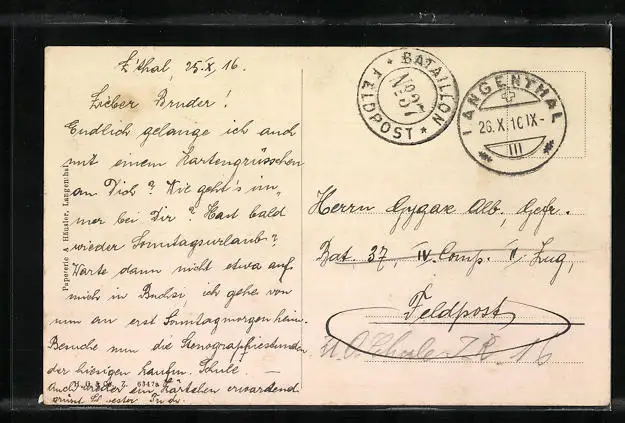 L'thal, 25.X.16.
Lieber Bruder!
Endlich gelange ich auch
mit einem Kartengrüsschen
an Dich? Wie geht's im,,
mer bei Dir? Hast bald
wieder Sonntagsurlaub?
Warte dann nicht etwa auf
mich in Buchsi, ich gehe von
nun an erst Sonntagmorgen heim.
Besuche nun die Stenographiestunden
der hiesigen kaufm. Schule. —
Auch wieder ein Kärtchen erwartend
grüsst Schwester Trudy.
Papeterie A Häusler, Langenthal
6347a
FELDPOST * BATAILLON *
No 37
LANGENTHAL
26.X.16 IX-
III
Herrn Gygax Alb., Gefr.
Bat. 37, IV. Comp. II. Zug,
Feldpost
U.O. Schule I.R. 16